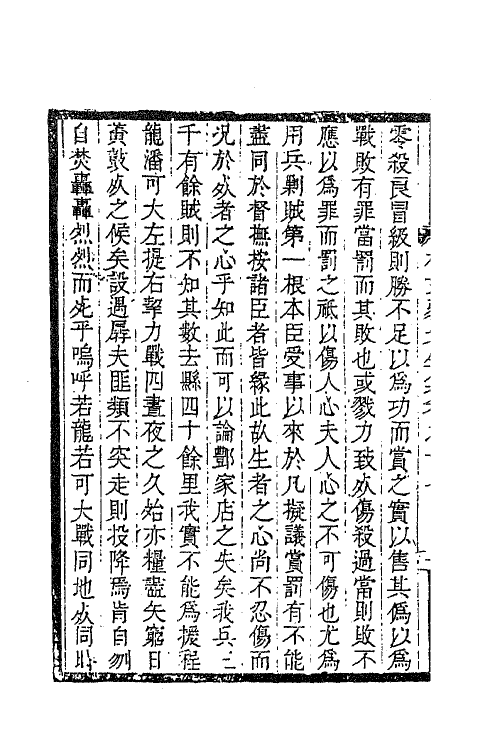 零殺良冒級則勝不足以爲功而賞之實以售其僞以爲
戰敗有罪當罰而其敗也或戮力致死傷殺過當則敗不
應以爲罪而罰之祗以傷人心夫人心之不可傷也尤爲
用兵剿賊第一根本臣受事以來於凡擬議賞罰有不能
盡同於督撫按諸臣者皆緣此故生者之心尚不忍傷而
况於死者之心乎知此而可以論酆家店之失矣我兵三
千有餘賊則不知其數去縣四十餘里我實不能爲援程
龍潘可大左提右挈力戰四晝夜之久始亦糧盡矢窮日
黃鼓死之候矣設遇孱夫匪類不突走則投降焉肯自刎
自焚轟轟烈烈而死乎嗚呼若龍若可大戰同地死同